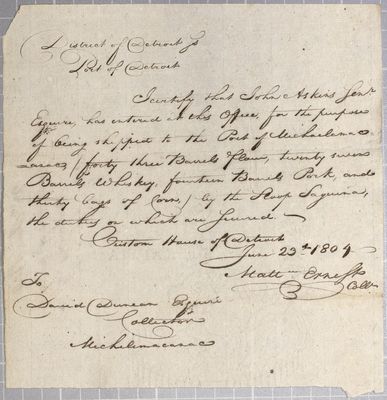 District of Detroit Ss
Port of Detroit
I certify that John Askins Senr
Esquire, has entered at this Office, for the purpose
of being shipped to the Port of Michaelema
canac / forty three Barrels flour, twenty seven
Barrels Whiskey, fourteen Barrels Pork, and
thirty bags of Corn, / by the Sloop Saguina,
the duties on which are secured. —
Custom House of Detroit
June 23d 1804
Mattw Ernest
Collr
To
David Duncan Esquire
Collector
Michilimacanac